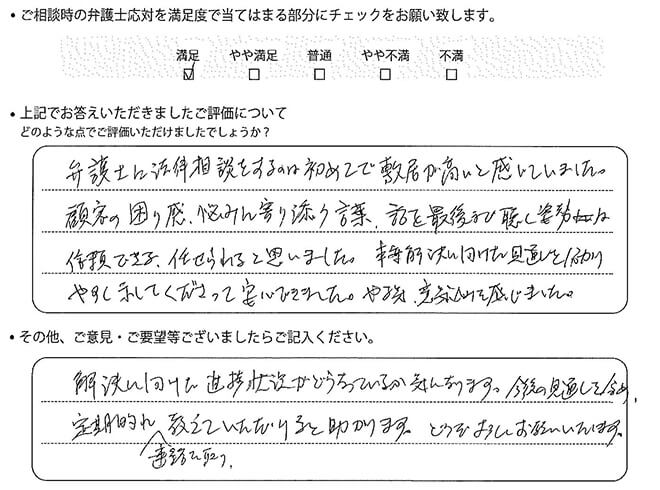 • ご相談時の弁護士応対を満足度で当てはまる部分にチェックをお願い致します。
満足 やや満足 普通 やや不満 不満
☑ □ □ □ □
• 上記でお答えいただきましたご評価について
どのような点でご評価いただけましたでしょうか?
弁護士に法律相談をするのは初めてで敷居が高いと感じていました。
顧客の困り感、悩みに寄り添う言葉、話を最後まで聴く姿勢は
信頼できる、任せられると思いました。解決に向けた見通しも分かり
やすく示してくださって安心できました。を感じました。
• その他、ご意見・ご要望等ございましたらご記入ください。
解決に向けた進捗状況がどうなっているか気になります。今後の見通しも含め、
定期的に教えていただけると助かります。どうぞよろしくお願いいたします。
連絡を取り、